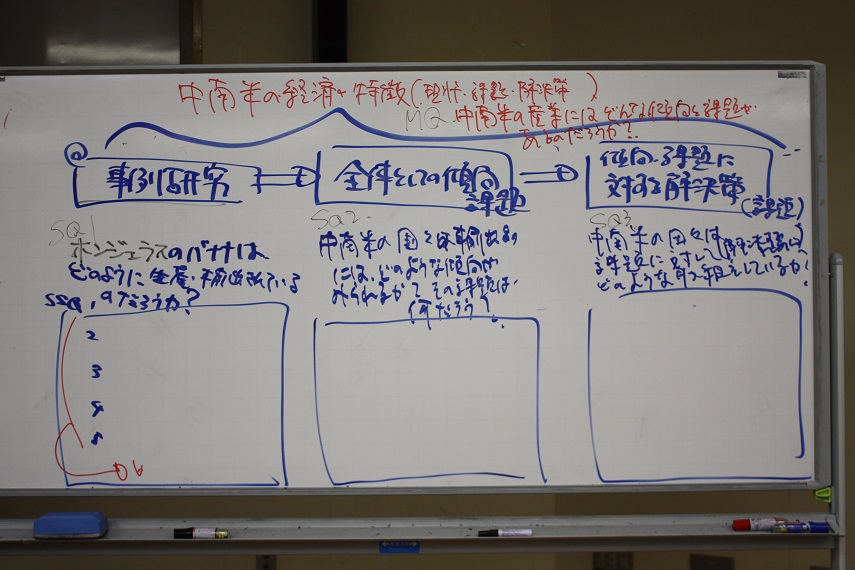 中南米の経済の特徴(現状・課題・解決策)
MQ 中南米の産業にはどんな傾向と課題が
あるのだろうか?
事例研究
全体としての傾向
課題
傾向・課題に
対する解決策
(課題)
SQ1
ホンジュラスのバナナは
どのように生産・輸出されている
のだろうか?
SSQ 1
2
3
4
5
6
SQ2
中南米の国々は輸出
には、どのような傾向が
みられるか?その課題は
何だろう?
SQ3
中南米の国々は
課題に対して
どのような取り組みをしているか?